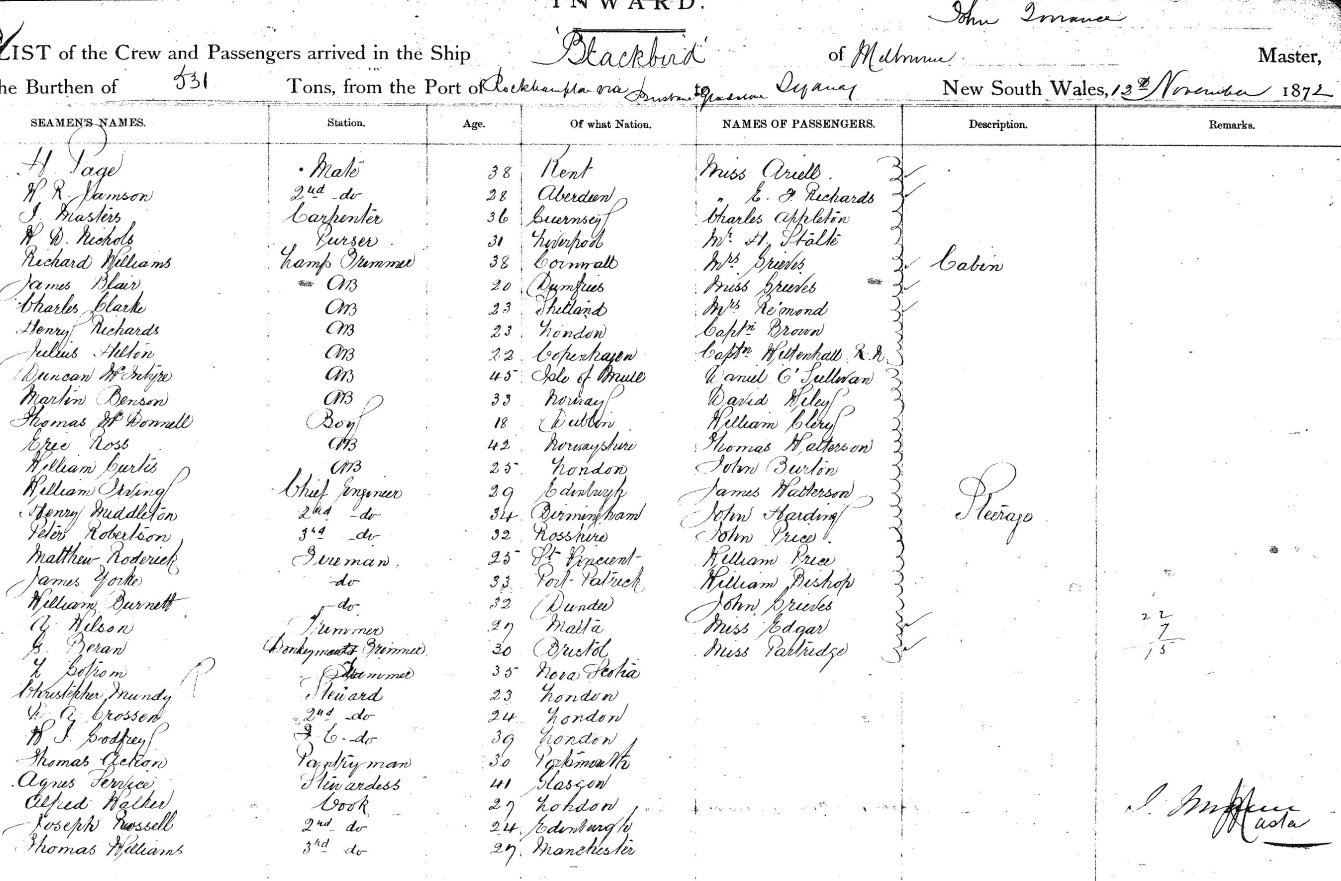 INWARD.
LIST of the Crew and Passengers arrived in the Ship 'Blackbird' of Melbourne John Torrance Master,
the Burthen of 531 Tons, from the Port of Rockhampton via Brisbane to Sydney New South Wales, 13th November 1872
SEAMEN'S NAMES. Station. Age. Of what Nation. NAMES OF PASSENGERS. Description. Remarks.
H. Page Mate 38 Kent Miss Ariell
W. R. Jamson 2nd do 28 Aberdeen " E. F. Richards
J. Masters Carpenter 36 Guernsey Charles Appleton
W. D. Nichols Purser 31 Liverpool Mr. H. Stalte
Richard Williams Lamp Trimmer 38 Cornwall Mrs Grieves Cabin
James Blair AB 20 Dumfries Miss Grieves
Charles Clarke AB 23 Shetland Mrs Remond
Henry Richards AB 23 London Captn Brown
Julius Helton AB 22 Copenhagen Captn R.N.
Duncan McIntyre AB 45 Isle of Mull Daniel O'Sullivan
Martin Benson AB 33 Norway David Wiley
Thomas McDonnell Boy 18 Dublin William Clery
Eric Ross AB 42 Thomas Watterson
William Curtis AB 25 London John Burton
William Irving Chief Engineer 29 Edinburgh James Watterson
Henry Middleton 2nd do 34 Birmingham John Harding Steerage
Peter Robertson 3rd do 32 Rosshire John Price
Matthew Roderick Fireman 25 St Vincent William Price
James Yorke do 33 Port-Patrick William Bishop
William Burnett do 32 Dundee John Grieves
A. Wilson Trimmer 27 Malta Miss Edgar 22
G. Beran Trimmer 30 Bristol Miss Partridge 7
15
L. Trimmer 35 Nova Scotia
Christopher Mundy Steward 23 London
A. Crossen 2nd do 24 London
W. J. Godfrey F. C. do 39 London
Thomas Action Pantryman 30 Portsmouth
Agnes Service Stewardess 41 Glasgow
Alfred Walker Cook 27 London
Joseph Rossell 2nd do 24 Edinburgh
Thomas Williams 3rd do 27 Manchester